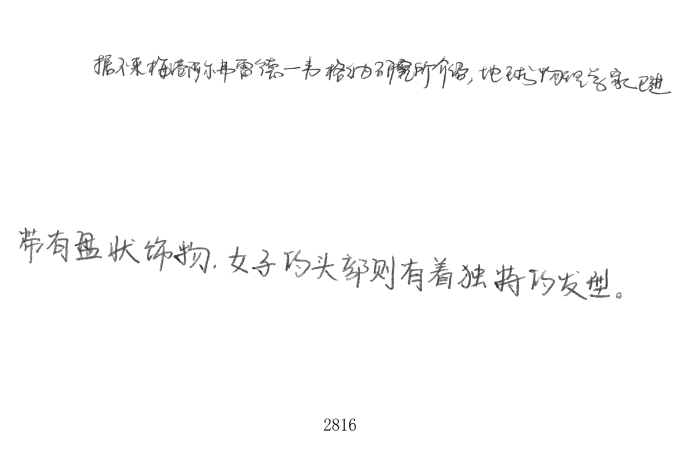 据不来梅港阿尔弗雷德一韦格纳研究所介绍,地球物理学家已进
带有盘状饰物,女子的头部则有着独特的发型。
2816